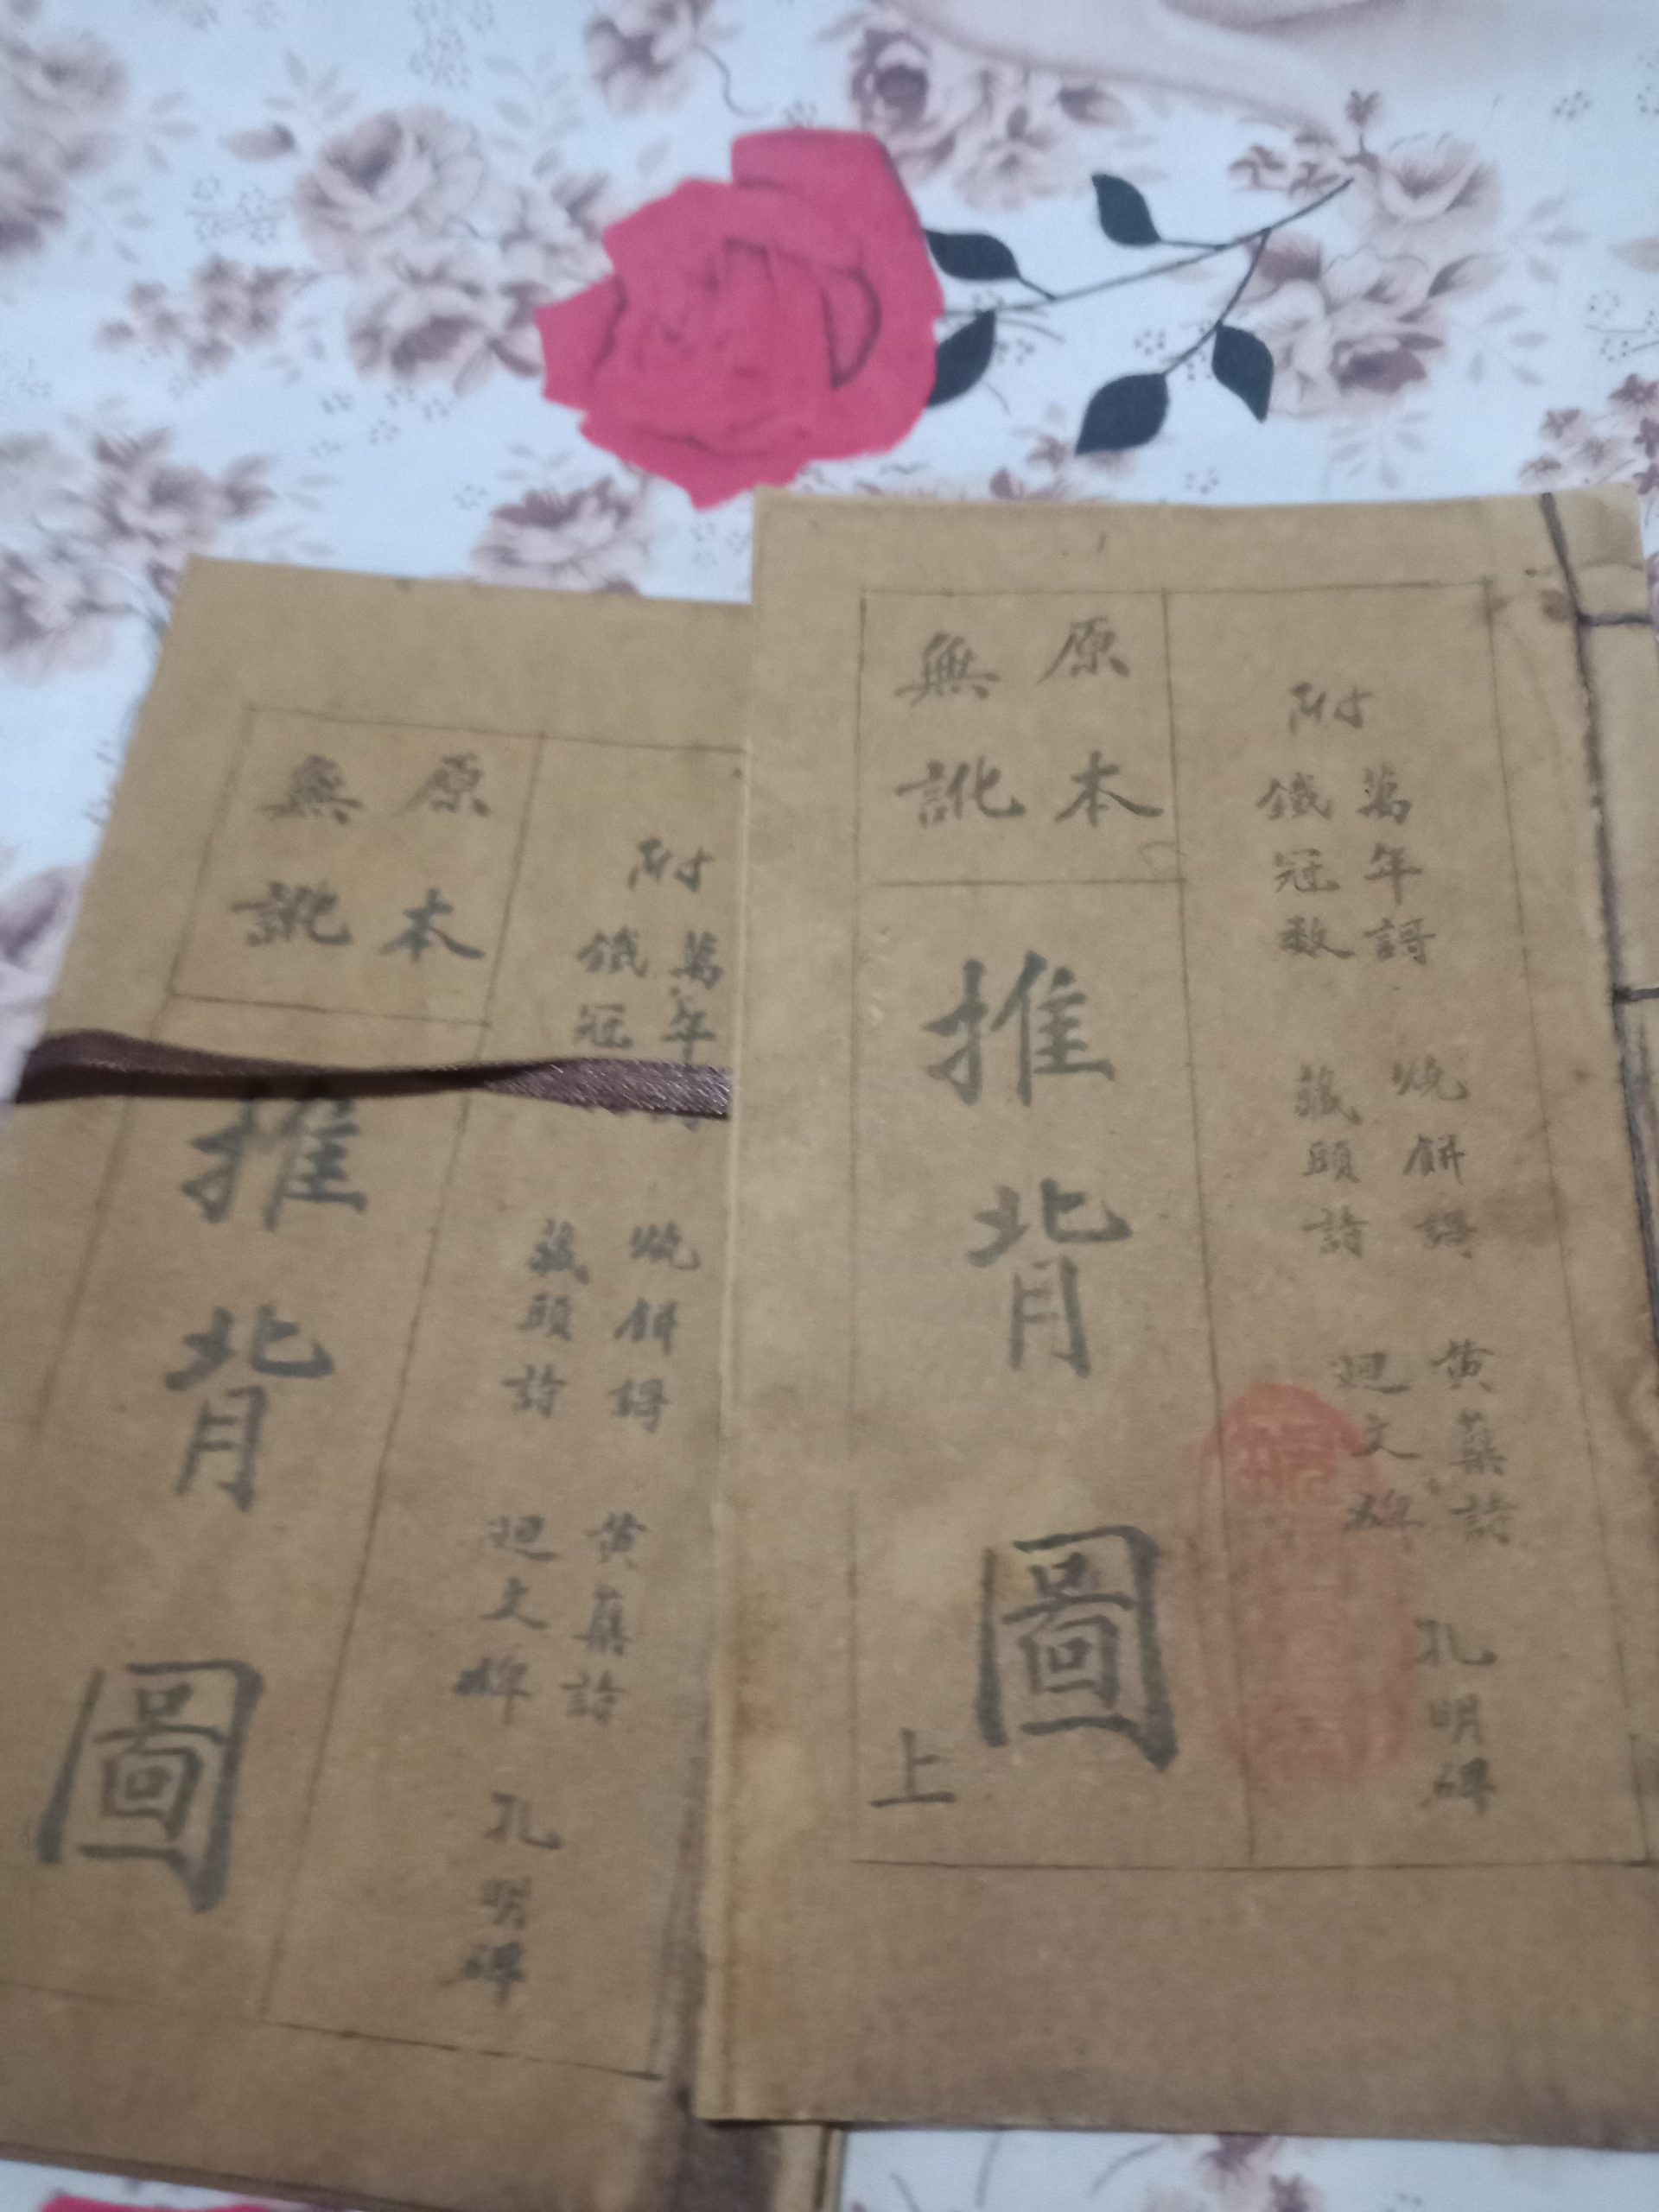 原本
無訛
附
萬年謌
鐵冠数
燒餅謌
藏頭詩
黄蘗詩
迴文碑
孔明碑
推背圖
上
原本
無訛
附
萬年
鐵冠
燒餅謌
藏頭詩
黄蘗詩
迴文碑
孔明碑
推背圖